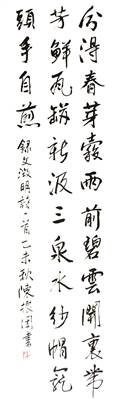 分得春芽穀雨前碧雲開裹帶
芳鮮瓦缾新汲三泉水紗帽籠
頭手自煎 錄文徵明詩一首乙未秋陳振國書